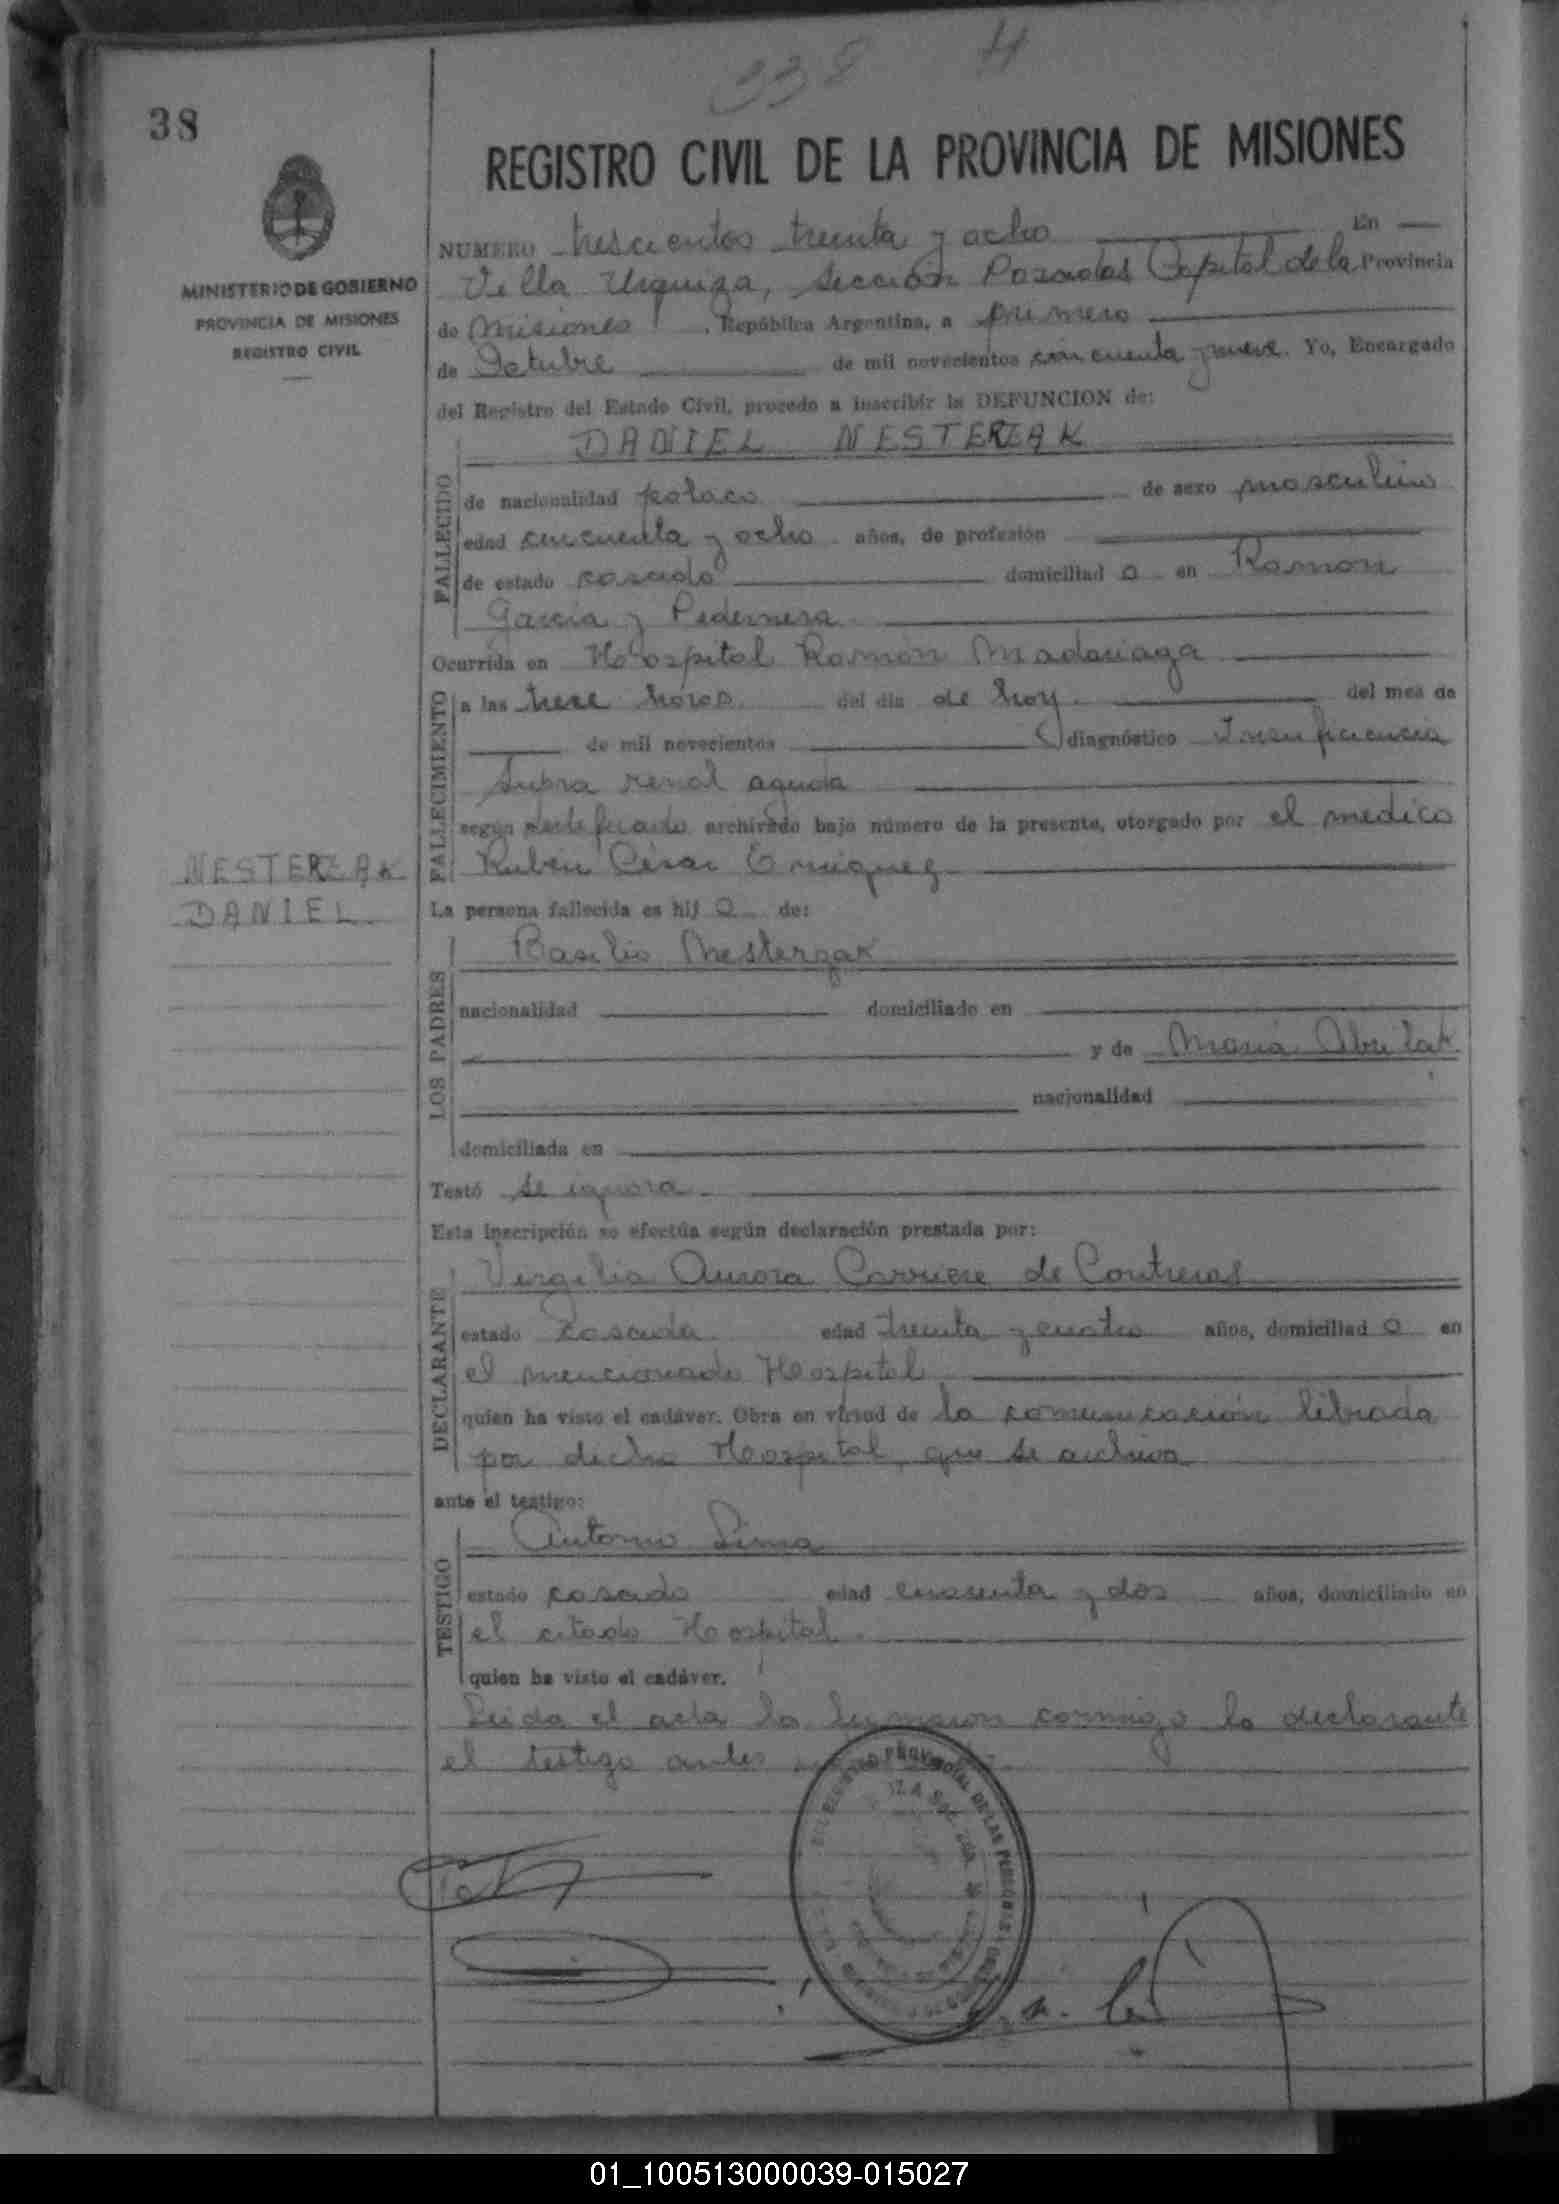 338 H
38
REGISTRO CIVIL DE LA PROVINCIA DE MISIONES
MINISTERIO DE GOBIERNO
PROVINCIA DE MISIONES
REGISTRO CIVIL
NUMERO trescientos treinta y ocho En
Villa Urquiza, Sección Posadas Capital de la Provincia
de Misiones, República Argentina, a primero
de Octubre de mil novecientos cincuenta y nueve. Yo, Encargado
del Registro del Estado Civil, procedo a inscribir la DEFUNCION de:
DANIEL NESTERZAK
FALLECIDO
de nacionalidad polaco de sexo masculino
edad cincuenta y ocho años, de profesión
de estado casado domiciliad o en Ramón
García y Pedernera
Ocurrida en Hospital Ramón Madariaga
FALLECIMIENTO
a las trece horas del día de hoy. del mes de
de mil novecientos diagnóstico Insuficiencia
Supra renal aguda
según certificado archivado bajo número de la presente, otorgado por el medico
Rubén César Enriquez
NESTERZAK
DANIEL
La persona fallecida es hij o de:
LOS PADRES
Basilio Nesterzak
nacionalidad domiciliado en
y de María
nacionalidad
domiciliada en
Testó se ignora
Esta inscripción se efectúa según declaración prestada por:
DECLARANTE
Virgilia Aurora Carriere de Contreras
estado casada edad treinta y cuatro años, domiciliad o en
el mencionado Hospital
quien ha visto el cadáver. Obra en virtud de la comunicación librada
por dicho Hospital, que se archiva
ante el testigo:
TESTIGO
Antonio
estado casado edad cuarenta y dos años, domiciliado en
el citado Hospital
quien ha visto el cadáver.
Leida el acta la firmaron conmigo la declarante
el testigo antes
REGISTRO PROVINCIAL DE LAS PERSONAS
01_100513000039-015027